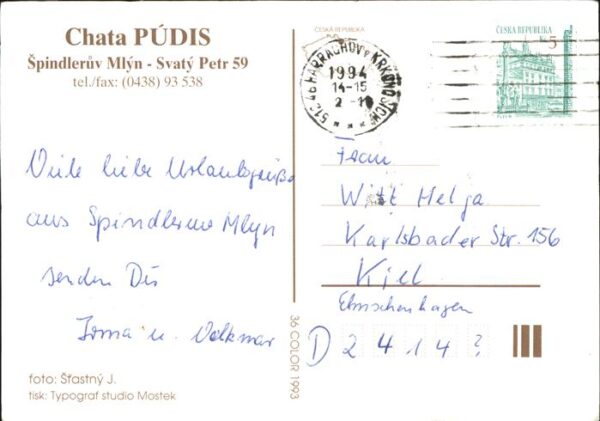 Chata PÚDIS
Špindlerův Mlýn - Svatý Petr 59
tel./fax: (0438) 93 538
Viele liebe Urlaubsgrüße
aus Spindleruv Mlyn
senden Dir
Irma u. Volkmar
foto: Šťastný J.
tisk: Typograf studio Mostek
36 COLOR 1993
ČESKÁ REPUBLIKA
ČESKÁ REPUBLIKA
5
512 46 HARRACHOV V KRKONOŠÍCH
1994
14-15
Frau
Witt Helga
Karlsbader Str. 156
Kiel
Elmschenhagen
D 2414?